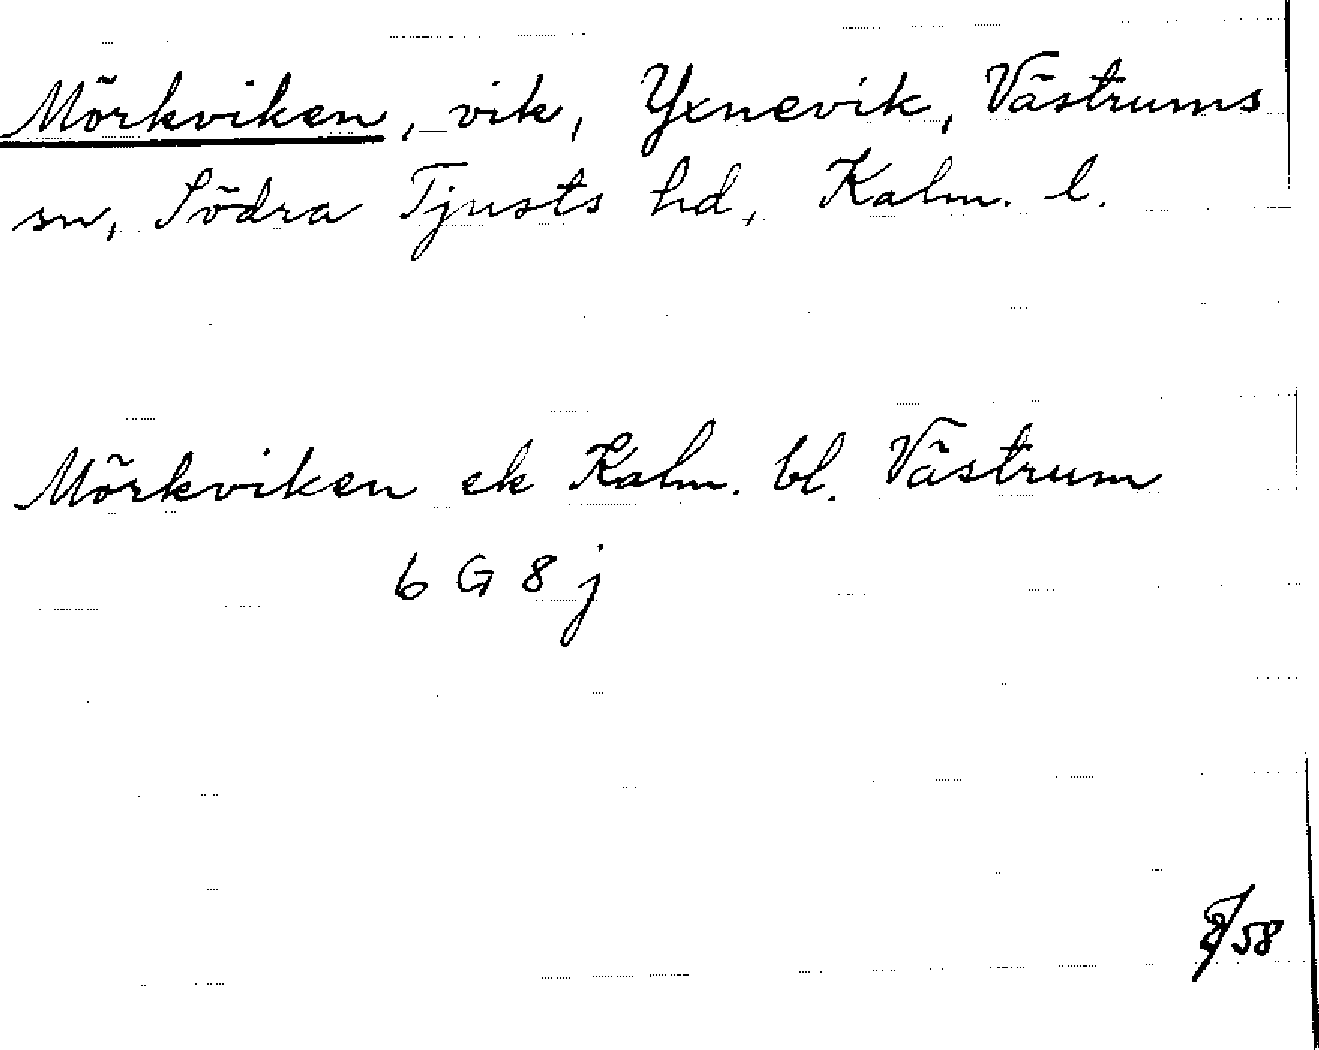 Mörkviken, vik, Yxnevik, Västrums
sn, Södra Tjusts hd, Kalm. l.
Mörkviken ek Kalm. bl. Västrum
6 G 8 j
58